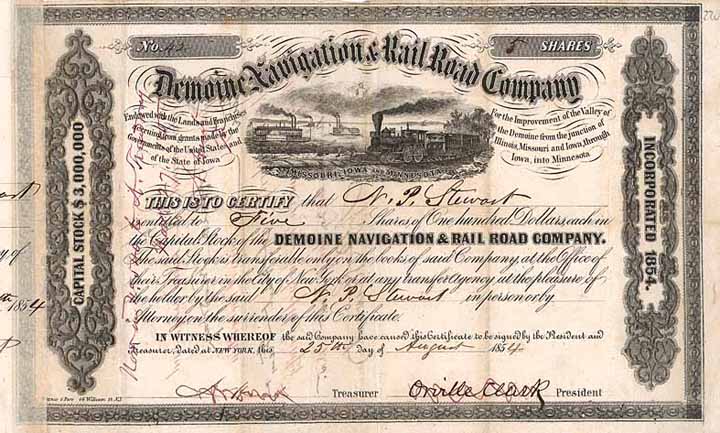 No. 43
5 SHARES
Demoine Navigation & Rail Road Company
Endowed with the Lands and Franchises
accruing from grants made by the
Governments of the United States and
of the State of Iowa
For the Improvement of the Valley of
the Demoine from the junction of
Illinois, Missouri and Iowa, through
Iowa, into Minnesota
MISSOURI, IOWA AND MINNESOTA
CAPITAL STOCK $3,000,000
INCORPORATED 1854.
THIS IS TO CERTIFY that N. P. Stewart
is entitled to Five Shares of One hundred Dollars, each in
the Capital Stock of the DEMOINE NAVIGATION & RAIL ROAD COMPANY.
The said Stock is transferable only on the books of said Company, at the Office of
their Treasurer in the City of New York or at any transfer Agency, at the pleasure of
the holder by the said N. P. Stewart in person or by
Attorney, on the surrender of this Certificate.
IN WITNESS WHEREOF the said Company have caused this Certificate to be signed by the President and
Treasurer, Dated at NEW YORK, this 25th day of August 1854
Treasurer Orville Clark President
1854